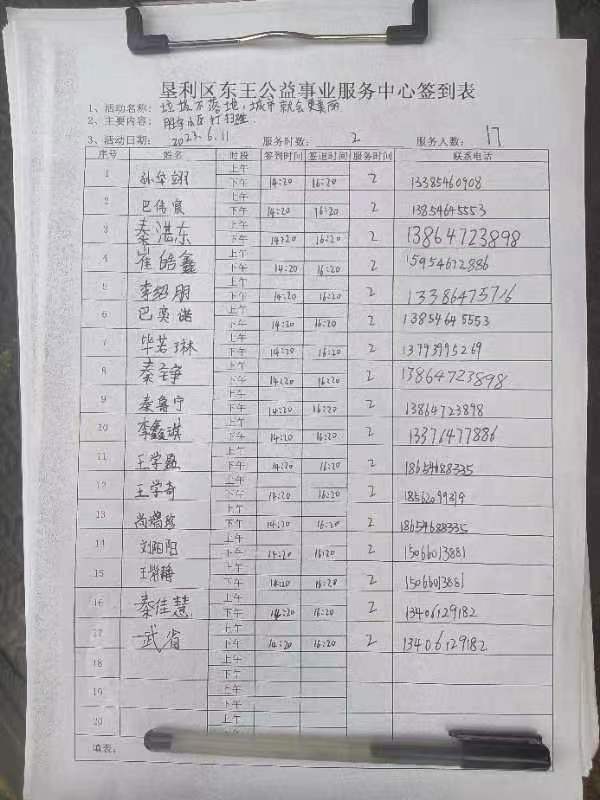 垦利区东王公益事业服务中心签到表
1、活动名称: 垃圾不落地,城市就会更美丽
2、主要内容: 打扫
3、活动日期: 2023.6.11 服务时数: 2 服务人数: 17
序号 姓名 时段 签到时间 签退时间 服务时间 联系电话
1 上午
下午 14:20 16:20 2 13385460908
2 巴伟宸 上午
下午 14:20 16:20 2 13854645553
3 秦湛东 上午
下午 14:20 16:20 2 13864723898
4 崔皓鑫 上午
下午 14:20 16:20 2 15954672886
5 李绍朋 上午
下午 14:20 16:20 2
6 巴奕诺 上午
下午 14:20 16:20 2 13854645553
7 毕若琳 上午
下午 14:20 16:20 2 13793995269
8 秦圣铮 上午
下午 14:20 16:20 2 13864723898
9 秦鲁宁 上午
下午 14:20 16:20 2 13864723898
10 李鑫淇 上午
下午 14:20 16:20 2 13376477886
11 王学磊 上午
下午 14:20 16:20 2 18654688335
12 王学奇 上午
下午 14:20 16:20 2
13 上午
下午 14:20 16:20 2 18654688335
14 刘阳阳 上午
下午 14:20 16:20 2 15066013881
15 上午
下午 14:20 16:20 2 15066013881
16 秦佳慧 上午
下午 14:20 16:20 2 13406129182
17 武省 上午
下午 14:20 16:20 2 13406129182
18 上午
下午
19 上午
下午
20 上午
填表: